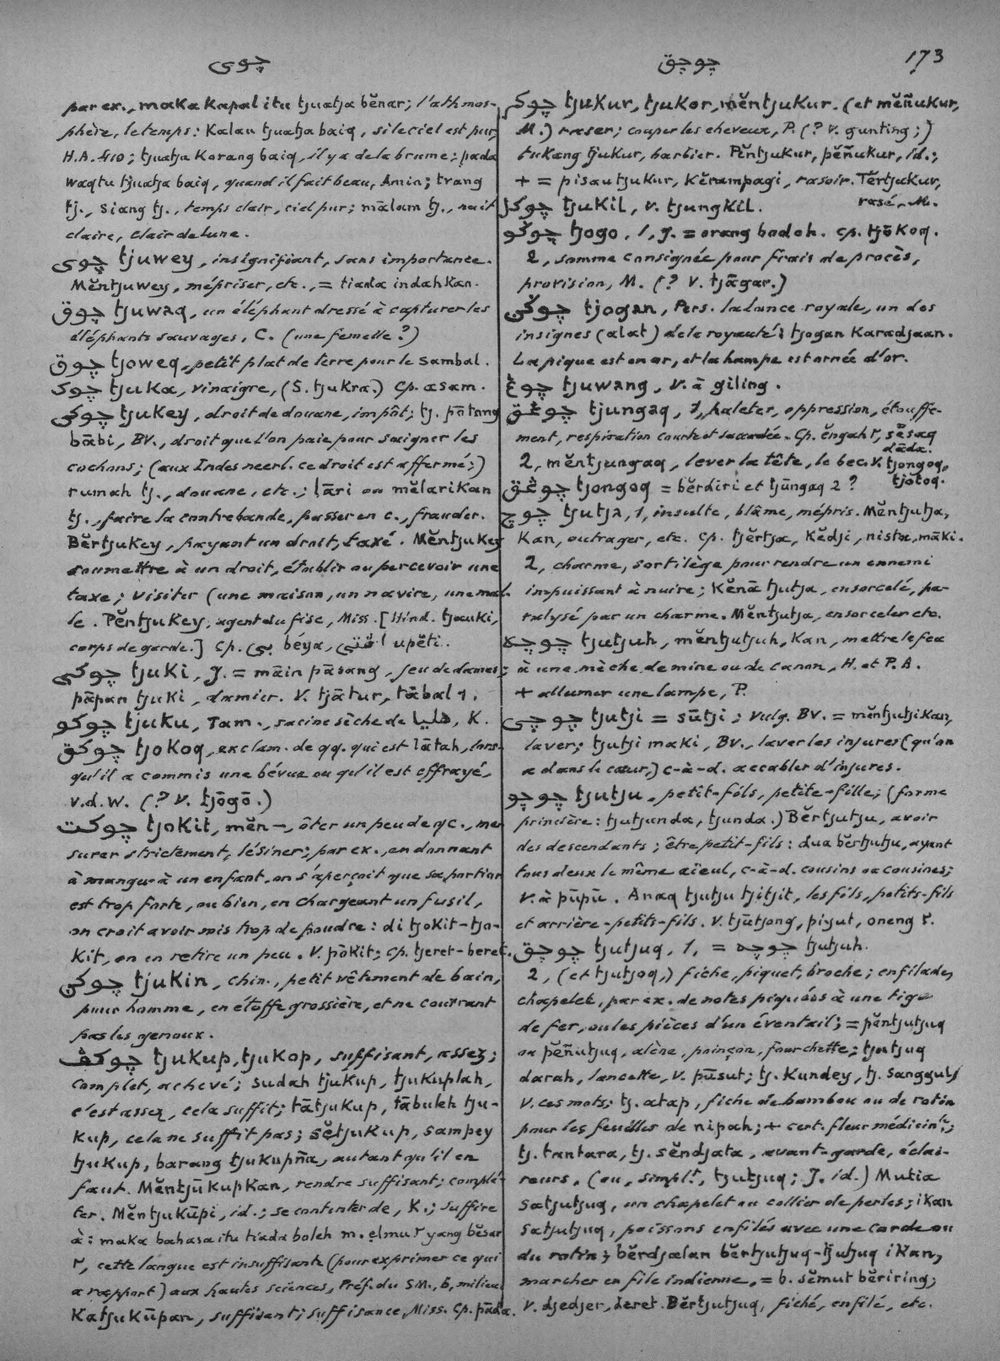 چوی
چوچق
173
par ex., maka kapal itu tjuatja bĕnar; l'athmos-
phère, le temps: Kalau tjuatja baiq, si le ciel est pur,
H.A. 410; tjuatja Karang baiq, il y a de la brume; pada
waqtu tjuatja baiq, quand il fait beau, Amin; trang
tj., siang tj., temps clair, ciel pur; mālam tj., nuit
claire, clair de lune.
چوی tjuwey, insignifiant, sans importance.
Mĕntjuwey, mépriser, etc., = tiada indahkan.
چوق tjuwaq, un éléphant dressé à capturer les
éléphants sauvages, C. (une femelle?)
چوق tjoweq, petit plat de terre pour le sambal.
چوک tjuka, vinaigre, (S. tjukra.) Cp. asam.
چوکی tjukey, droit de douane, impôt; tj. pātang
bābi, BV., droit que l'on paie pour saigner les
cochons; (aux Indes neerl. ce droit est affermé;)
rumah tj., douane, etc.; lāri ou mĕlarikan
tj., faire la contrebande, passer en c., frauder.
Bĕrtjukey, payant un droit, taxé. Mĕntjukey
soumettre à un droit, établir ou percevoir une
taxe; visiter (une maison, un navire, une mal-
le. Pĕntjukey, agent du fisc, Miss. [Hind. tjauki,
corps de garde.] Cp. بی béya, اڤتی upĕti.
چوکی tjuki, J. = māin pāsang, jeu de dames;
pāpan tjuki, damier. V. tjātur, tābal 1.
چوکو tjuku, Tam., racine sèche de هليا, K.
چوکق tjokoq, exclam. de qq. qui est lātah, lors-
qu'il a commis une bévue ou qu'il est effrayé,
v.d.W. (? v. tjōgō.)
چوکت tjokit, mĕn—, ôter un peu de qc., me-
surer strictement, lésiner; par ex., en donnant
à manger à un enfant, on s'aperçoit que sa portion
est trop forte, ou bien, en chargeant un fusil,
on croit avoir mis trop de poudre: di tjokit-tjo-
kit, on en retire un peu. V. pōkit; cp. tjeret-beret.
چوکن tjukin, chin., petit vêtement de bain,
pour homme, en étoffe grossière, et ne couvrant
pas les genoux.
چوکڤ tjukup, tjukop, suffisant, assez;
complet, achevé; sudah tjukup, tjukuplah,
c'est assez, cela suffit; tātjukup, tābuleh tju-
kup, cela ne suffit pas; sĕtjukup, sampey
tjukup, barang tjukupña, autant qu'il en
faut. Mĕntjūkupkan, rendre suffisant; complé-
ter. Mĕntjukūpi, id.; se contenter de, K.; suffire
à: maka bahasa itu tiada boleh m. ęlmu 2 yang bĕsar
2, cette langue est insuffisante (pour exprimer ce qui
a rapport) aux hautes sciences, Préf. du SM., B, milieu
Katjukūpan, suffisant; suffisance, Miss. Cp. pāda.
چوکر tjukur, tjukor, mĕntjukur. (et mĕñukur,
M.) raser; couper les cheveux, P. (? v. gunting;)
tukang tjukur, barbier. Pĕntjukur, pĕñukur, id.;
+ = pisau tjukur, kĕrampagi, rasoir. Tĕrtjukur,
rasé, M.
چوکل tjukil, v. tjungkil.
چوگو tjogo, 1, J. = orang bodoh. Cp. tjōkoq.
2, somme consignée pour frais de procès,
provision, M. (? v. tjāgar.)
چوگن tjogan, Pers. la lance royale, un des
insignes (alat) de la royauté: tjogan karadjaan.
La pique est en or, et la hampe est ornée d'or.
چوغ tjuwang, v. à giling.
چوڠق tjungaq, 1, haleter, oppression, étouffe-
ment, respiration courte et saccadée. Cp. ĕngah 2, sĕsaq
dāda.
2, mĕntjungaq, lever la tête, le bec. V. tjongoq,
tjotoq.
چوڠق tjongoq = bĕrdiri et tjūngaq 2?
چوچ tjutja, 1, insulte, blâme, mépris. Mĕntjutja,
Kan, outrager, etc. Cp. tjĕrtja, kĕdji, nista, māki.
2, charme, sortilège pour rendre un ennemi
impuissant à nuire; kĕnā tjutja, ensorcelé, pa-
ralysé par un charme. Mĕntjutja, ensorceler etc.
چوچه tjutjuh, mĕntjutjuh, Kan, mettre le feu
à une mèche de mine ou de canon, H. et P.A.
+ allumer une lampe, P.
چوچی tjutji = sūtji; vulg. BV. = mĕntjutjikan,
laver; tjutji maki, BV., laver les injures (qu'on
a dans le cœur,) c-à-d. accabler d'injures.
چوچو tjutju, petit-fils, petite-fille; (forme
princière: tjutjunda, tjunda.) Bĕrtjutju, avoir
des descendants; être petit-fils: dua bĕrtjutju, ayant
tous deux le même aïeul, c-à-d. cousins ou cousines;
v. à pūpū. Anaq tjutju tjitjit, les fils, petits-fils
et arrière-petits-fils. V. tjūtjong, piyut, oneng 2.
چوچق tjutjuq, 1, = چوچه tjutjuh.
2, (et tjutjoq,) fiche, piquet, broche; enfilade,
chapelet, par ex. de notes piquées à une tige
de fer, ou les pièces d'un éventail; = pĕntjutjuq
ou pĕñutjuq, alène, poinçon, fourchette; tjutjuq
darah, lancette, v. pūsut; tj. kundey, tj. sanggul,
v. ces mots; tj. atap, fiche de bambou ou de rotin
pour les feuilles de nipah; + cert. fleur médicinle;
tj. tantara, tj. sĕndjata, avant-garde, éclai-
reurs, (ou, simplt, tjutjuq; J. id.) Mutia
satjutjuq, un chapelet ou collier de perles; ikan
satjutjuq, poissons enfilés avec une corde ou
du rotin; bĕrdjalan bĕrtjutjuq-tjutjuq ikan,
marcher en file indienne, = b. sĕmut bĕriring;
v. djedjer, deret. Bĕrtjutjuq, fiché, enfilé, etc.